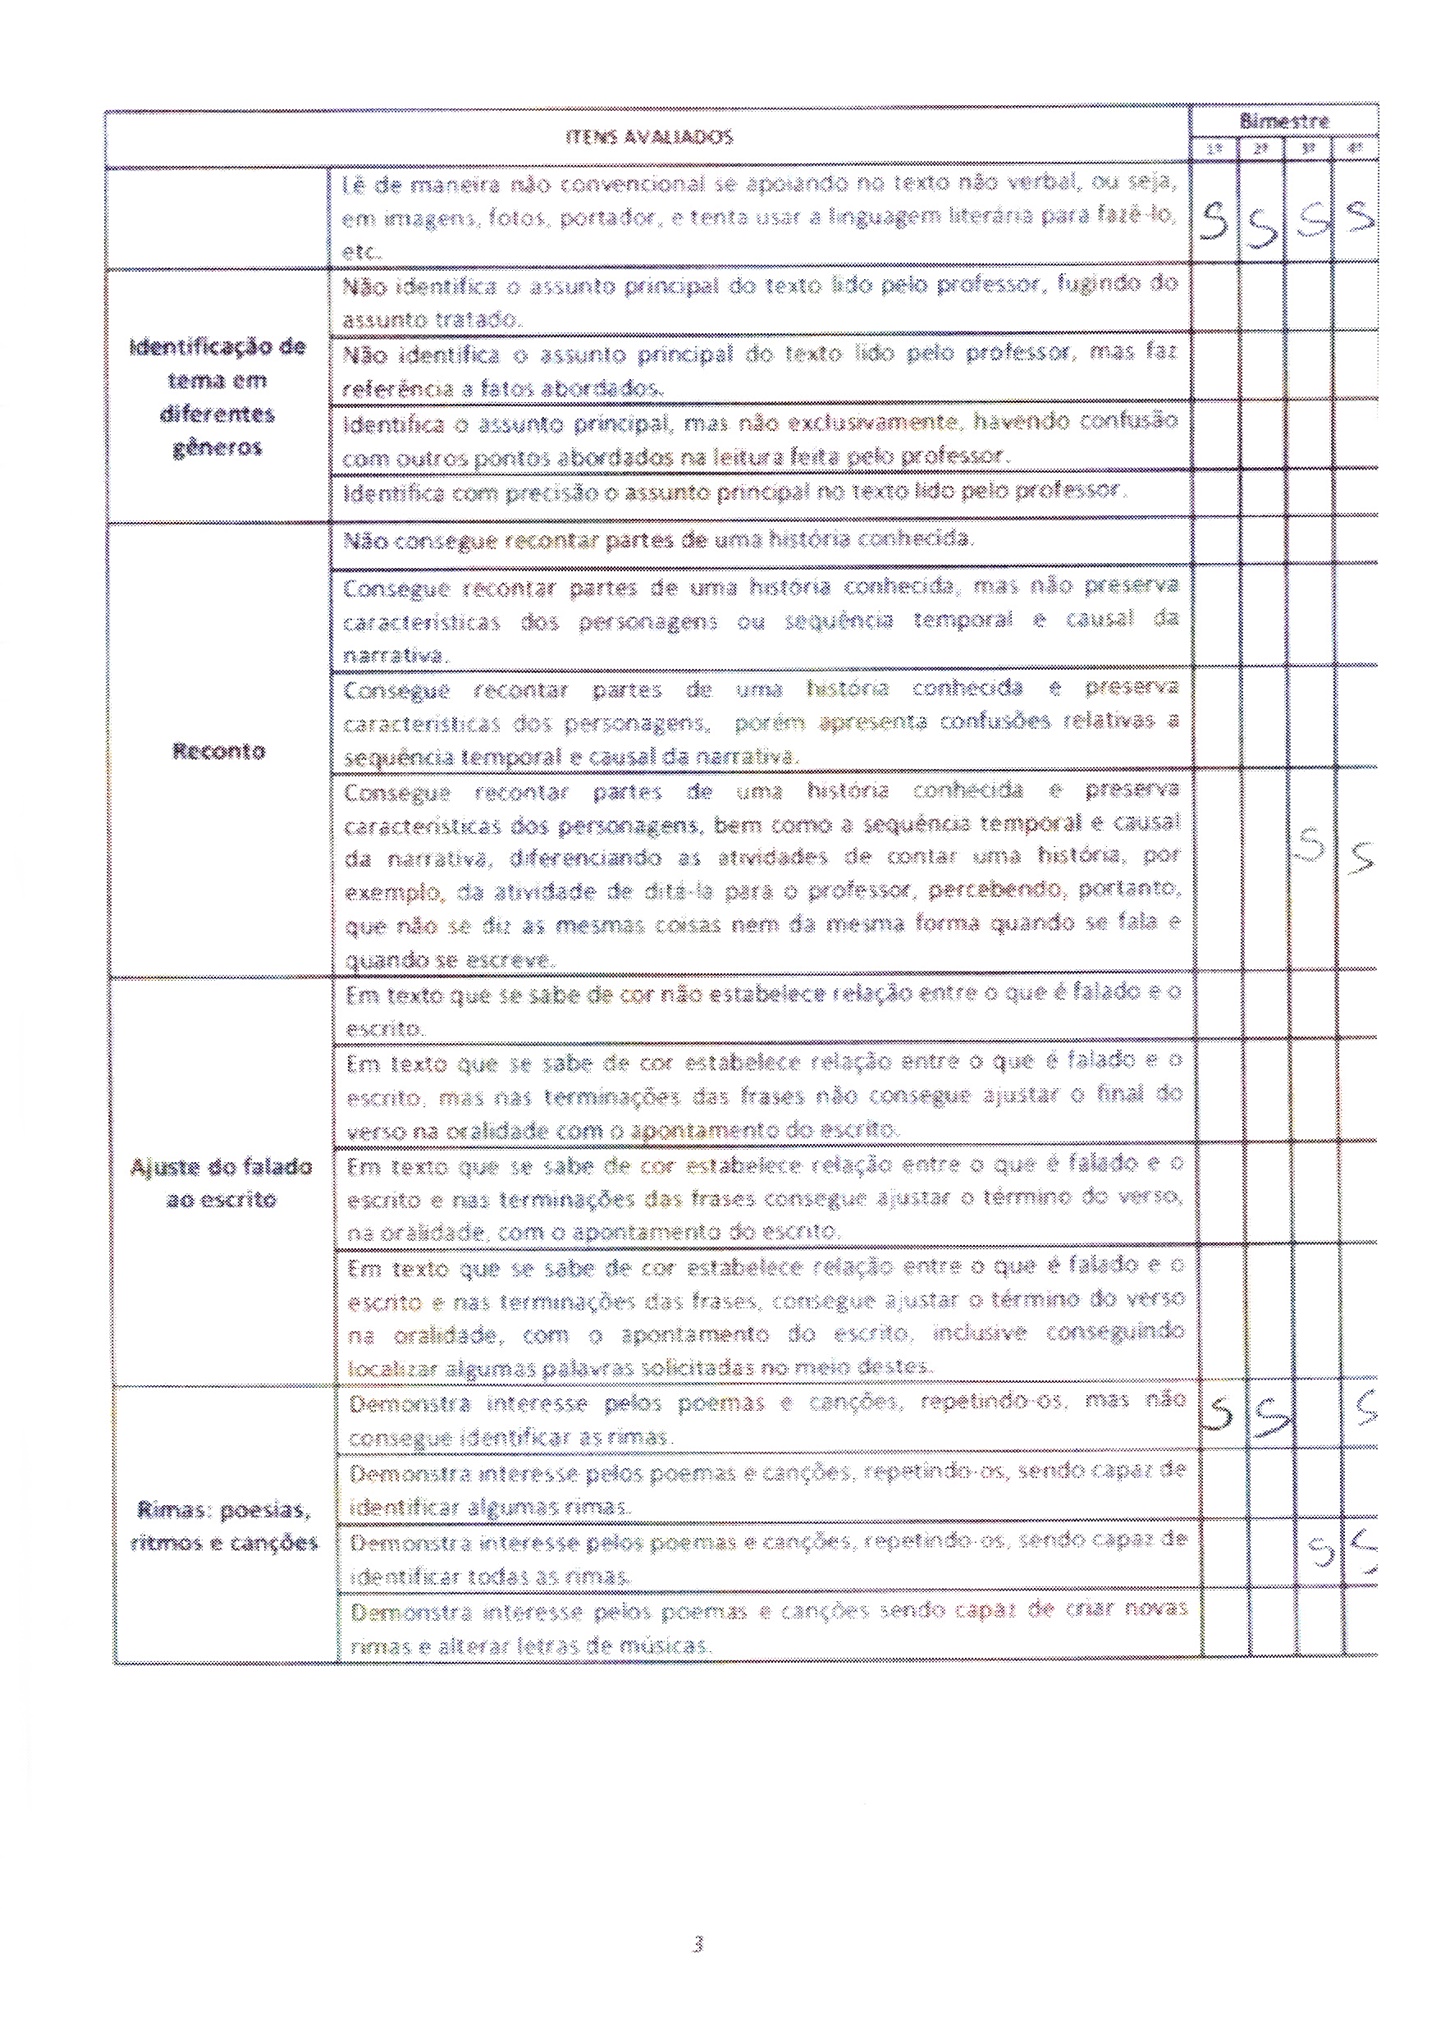 ITENS AVALIADOS
Bimestre
1º 2º 3º 4º
Lê de maneira não convencional se apoiando no texto não verbal, ou seja,
em imagens, fotos, portador, e tenta usar a linguagem literária para fazê-lo,
etc.
S S S S
Identificação de
tema em
diferentes
gêneros
Não identifica o assunto principal do texto lido pelo professor, fugindo do
assunto tratado.
Não identifica o assunto principal do texto lido pelo professor, mas faz
referência a fatos abordados.
Identifica o assunto principal, mas não exclusivamente, havendo confusão
com outros pontos abordados na leitura feita pelo professor.
Identifica com precisão o assunto principal no texto lido pelo professor.
Reconto
Não consegue recontar partes de uma história conhecida.
Consegue recontar partes de uma história conhecida, mas não preserva
características dos personagens ou sequência temporal e causal da
narrativa.
Consegue recontar partes de uma história conhecida e preserva
características dos personagens, porém apresenta confusões relativas a
sequência temporal e causal da narrativa.
Consegue recontar partes de uma história conhecida e preserva
características dos personagens, bem como a sequência temporal e causal
da narrativa, diferenciando as atividades de contar uma história, por
exemplo, da atividade de ditá-la para o professor, percebendo, portanto,
que não se diz as mesmas coisas nem da mesma forma quando se fala e
quando se escreve.
S S
Ajuste do falado
ao escrito
Em texto que se sabe de cor não estabelece relação entre o que é falado e o
escrito.
Em texto que se sabe de cor estabelece relação entre o que é falado e o
escrito, mas nas terminações das frases não consegue ajustar o final do
verso na oralidade com o apontamento do escrito.
Em texto que se sabe de cor estabelece relação entre o que é falado e o
escrito e nas terminações das frases consegue ajustar o término do verso,
na oralidade, com o apontamento do escrito.
Em texto que se sabe de cor estabelece relação entre o que é falado e o
escrito e nas terminações das frases, consegue ajustar o término do verso
na oralidade, com o apontamento do escrito, inclusive conseguindo
localizar algumas palavras solicitadas no meio destes.
Rimas: poesias,
ritmos e canções
Demonstra interesse pelos poemas e canções, repetindo-os, mas não
consegue identificar as rimas.
S S S
Demonstra interesse pelos poemas e canções, repetindo-os, sendo capaz de
identificar algumas rimas.
Demonstra interesse pelos poemas e canções, repetindo-os, sendo capaz de
identificar todas as rimas.
S S
Demonstra interesse pelos poemas e canções sendo capaz de criar novas
rimas e alterar letras de músicas.
3